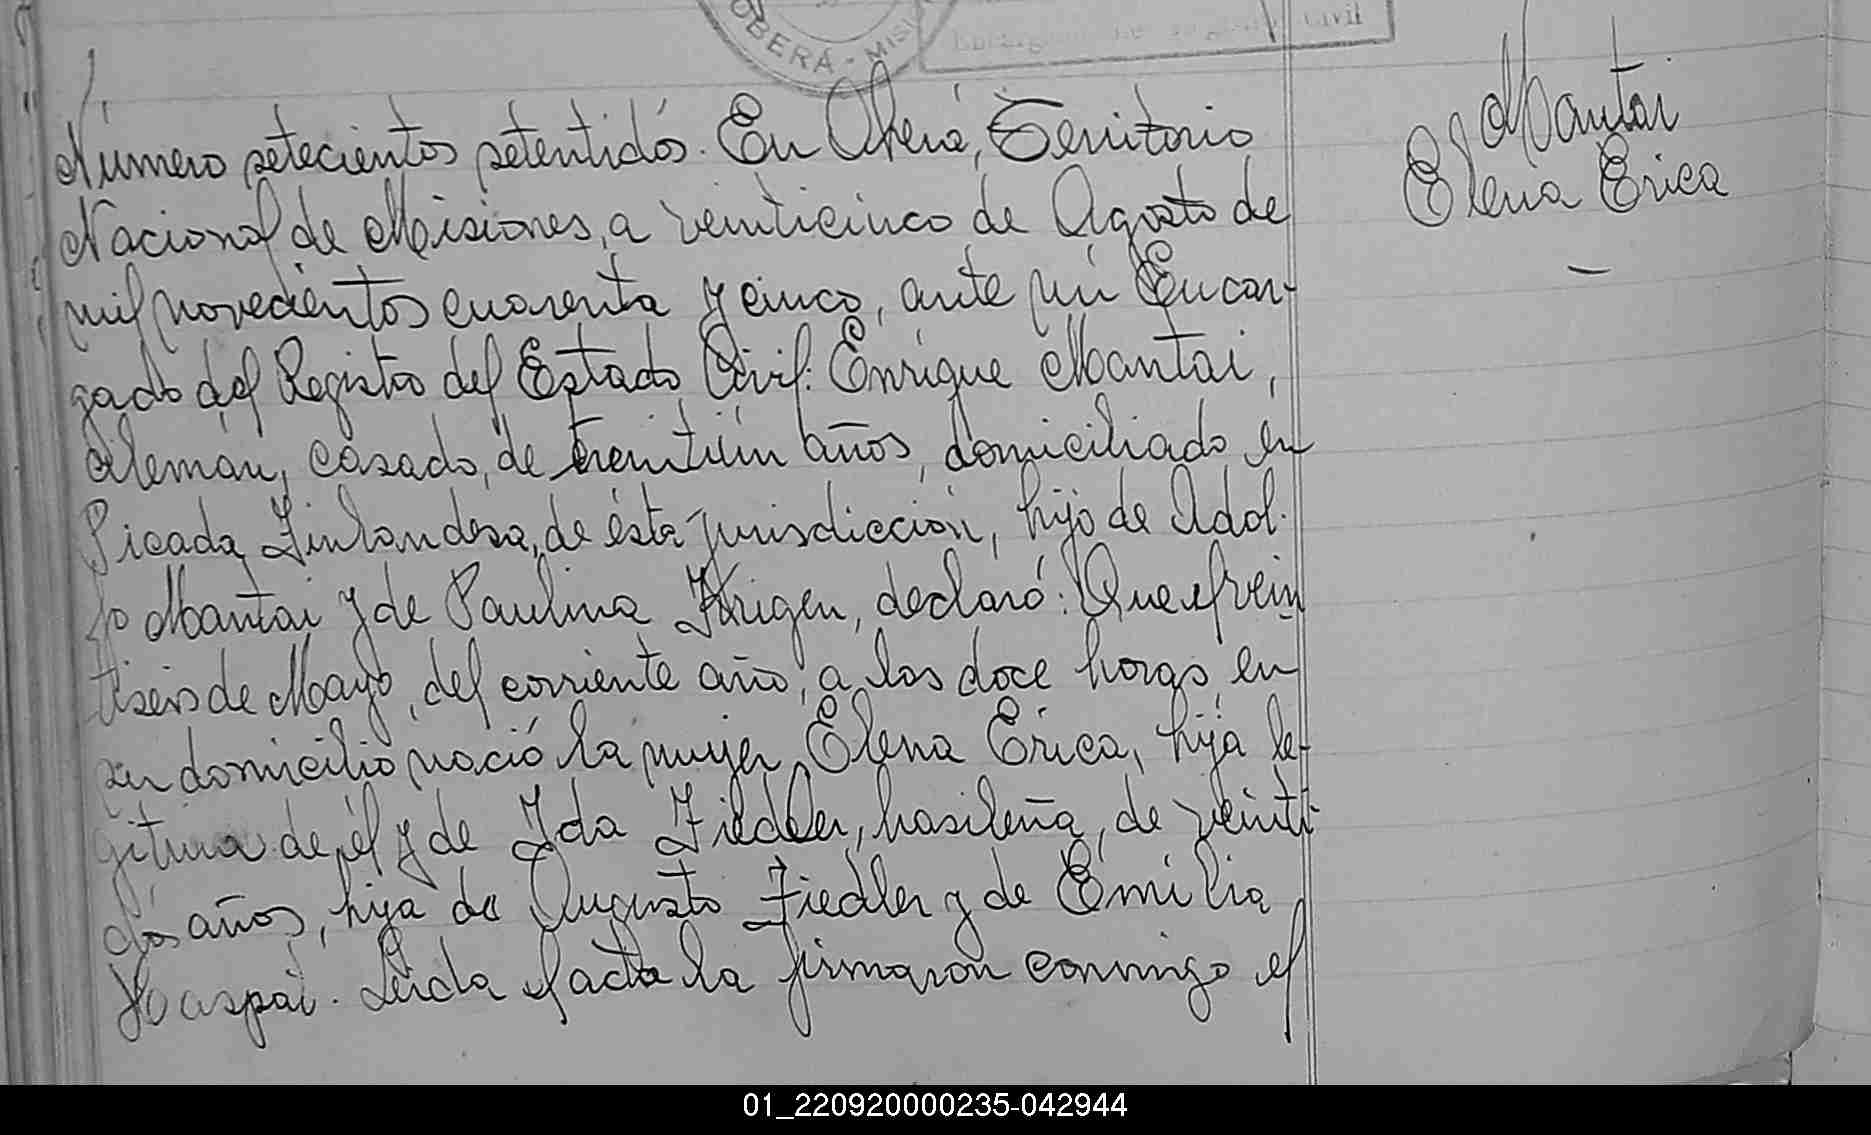 OBERÁ - MISI
Encargado de Registro Civil
Número setecientos setentidós. En Oberá, Territorio
Nacional de Misiones, a veinticinco de Agosto de
mil novecientos cuarenta y cinco, ante mí Encar-
gado del Registro del Estado Civil: Enrique Mantai,
alemán, casado, de treintiún años, domiciliado en
Picada Finlandesa, de ésta jurisdicción, hijo de Adol-
fo Mantai y de Paulina Krigen, declaró: Que el vein
tiseis de Mayo, del corriente año, a las doce horas, en
su domicilio nació la mujer Elena Erica, hija le-
gitima de él y de Ida Fiedler, brasileña, de veinti-
dós años, hija de Augusto Fiedler y de Emilia
Haspai. Leída el acta la firmaron conmigo el
Mantai
Elena Erica
01_220920000235-042944